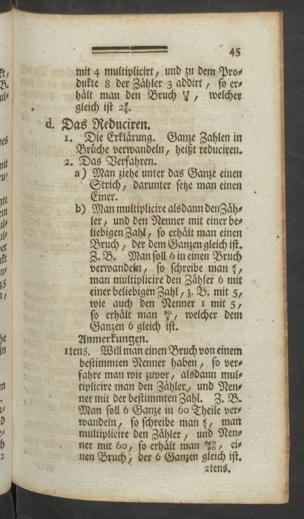 45
mit 4 multiplicirt, und zu dem Pro-
dukte 8 der Zähler 3 addirt, so er-
hält man den Bruch 11/4, welcher
gleich ist 2 3/4.
d. Das Reduciren.
1. Die Erklärung. Ganze Zahlen in
Brüche verwandeln, heißt reduciren.
2. Das Verfahren.
a) Man ziehe unter das Ganze einen
Strich, darunter setze man einen
Einer.
b) Man multiplicire alsdann den Zäh-
ler, und den Nenner mit einer be-
liebigen Zahl, so erhält man einen
Bruch, der dem Ganzen gleich ist.
Z. B. Man soll 6 in einen Bruch
verwandeln, so schreibe man 6/1,
man multiplicire den Zähler 6 mit
einer beliebigen Zahl, z. B. mit 5,
wie auch den Nenner 1 mit 5,
so erhält man 30/5, welcher dem
Ganzen 6 gleich ist.
Anmerkungen.
1tens. Will man einen Bruch von einem
bestimmten Nenner haben, so ver-
fahre man wie zuvor, alsdann mul-
tiplicire man den Zähler, und Nen-
ner mit der bestimmten Zahl. Z. B.
Man soll 6 Ganze in 60 Theile ver-
wandeln, so schreibe man 6/1, man
multiplicire den Zähler, und Nen-
ner mit 60, so erhält man 360/60, ei-
nen Bruch, der 6 Ganzen gleich ist.
2tens.